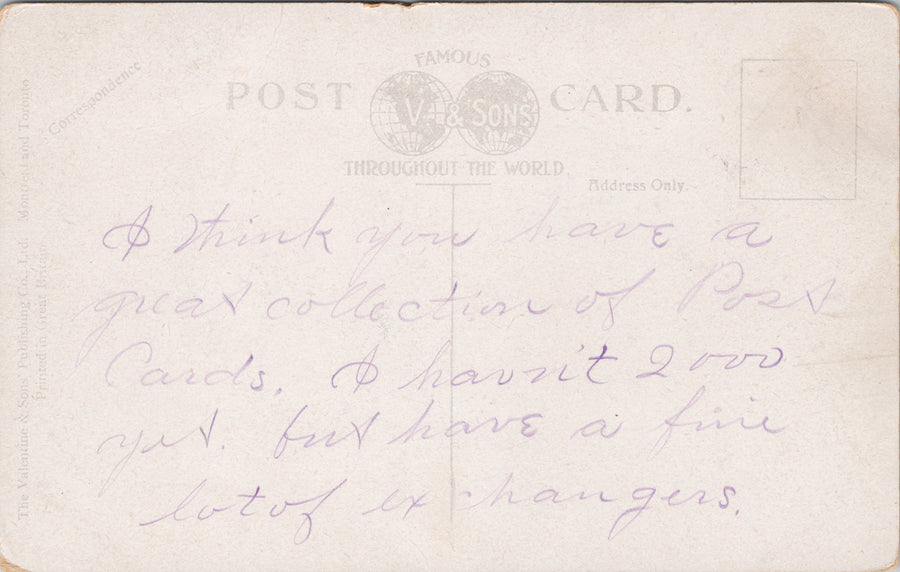 FAMOUS
POST V. & SONS CARD.
THROUGHOUT THE WORLD.
Correspondence
Address Only.
The Valentine & Sons Publishing Co., Ltd. Montreal and Toronto
Printed in Great Britain
I think you have a
great collection of Post
Cards. I havn't 2000
yet. but have a fine
lot of exchangers.